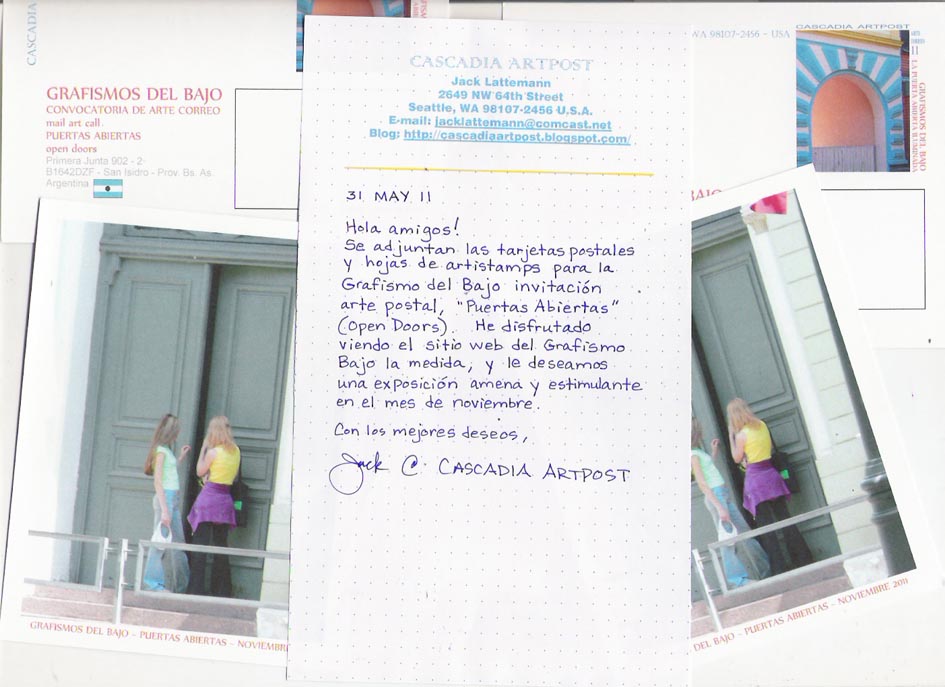 CASCADIA
GRAFISMOS DEL BAJO
CONVOCATORIA DE ARTE CORREO
mail art call
PUERTAS ABIERTAS
open doors
Primera Junta 902 - 2-
B1642DZF - San Isidro - Prov. Bs. As.
Argentina
CASCADIA ARTPOST
Jack Lattemann
2649 NW 64th Street
Seattle, WA 98107-2456 U.S.A.
E-mail: jacklattemann@comcast.net
Blog: http://cascadiaartpost.blogspot.com/
31 MAY 11
Hola amigos!
Se adjuntan las tarjetas postales
y hojas de artistamps para la
Grafismo del Bajo invitación
arte postal, "Puertas Abiertas"
(Open Doors). He disfrutado
viendo el sitio web del Grafismo
Bajo la medida, y le deseamos
una exposición amena y estimulante
en el mes de noviembre.
Con los mejores deseos,
Jack C. CASCADIA ARTPOST
WA 98107-2456 - USA
CASCADIA ARTPOST
ARTE
CORREO
11
LA PUERTA ABIERTA ILUMINADA
GRAFISMOS DEL BAJO
BAJO
GRAFISMOS DEL BAJO - PUERTAS ABIERTAS - NOVIEMBRE
DEL BAJO - PUERTAS ABIERTAS - NOVIEMBRE 2011